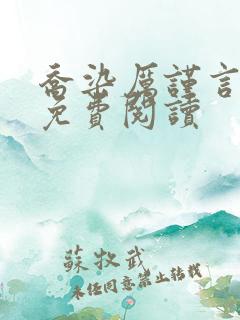 喬染厲謹言
免費閱讀
蘇牧武
未經同意禁止轉載